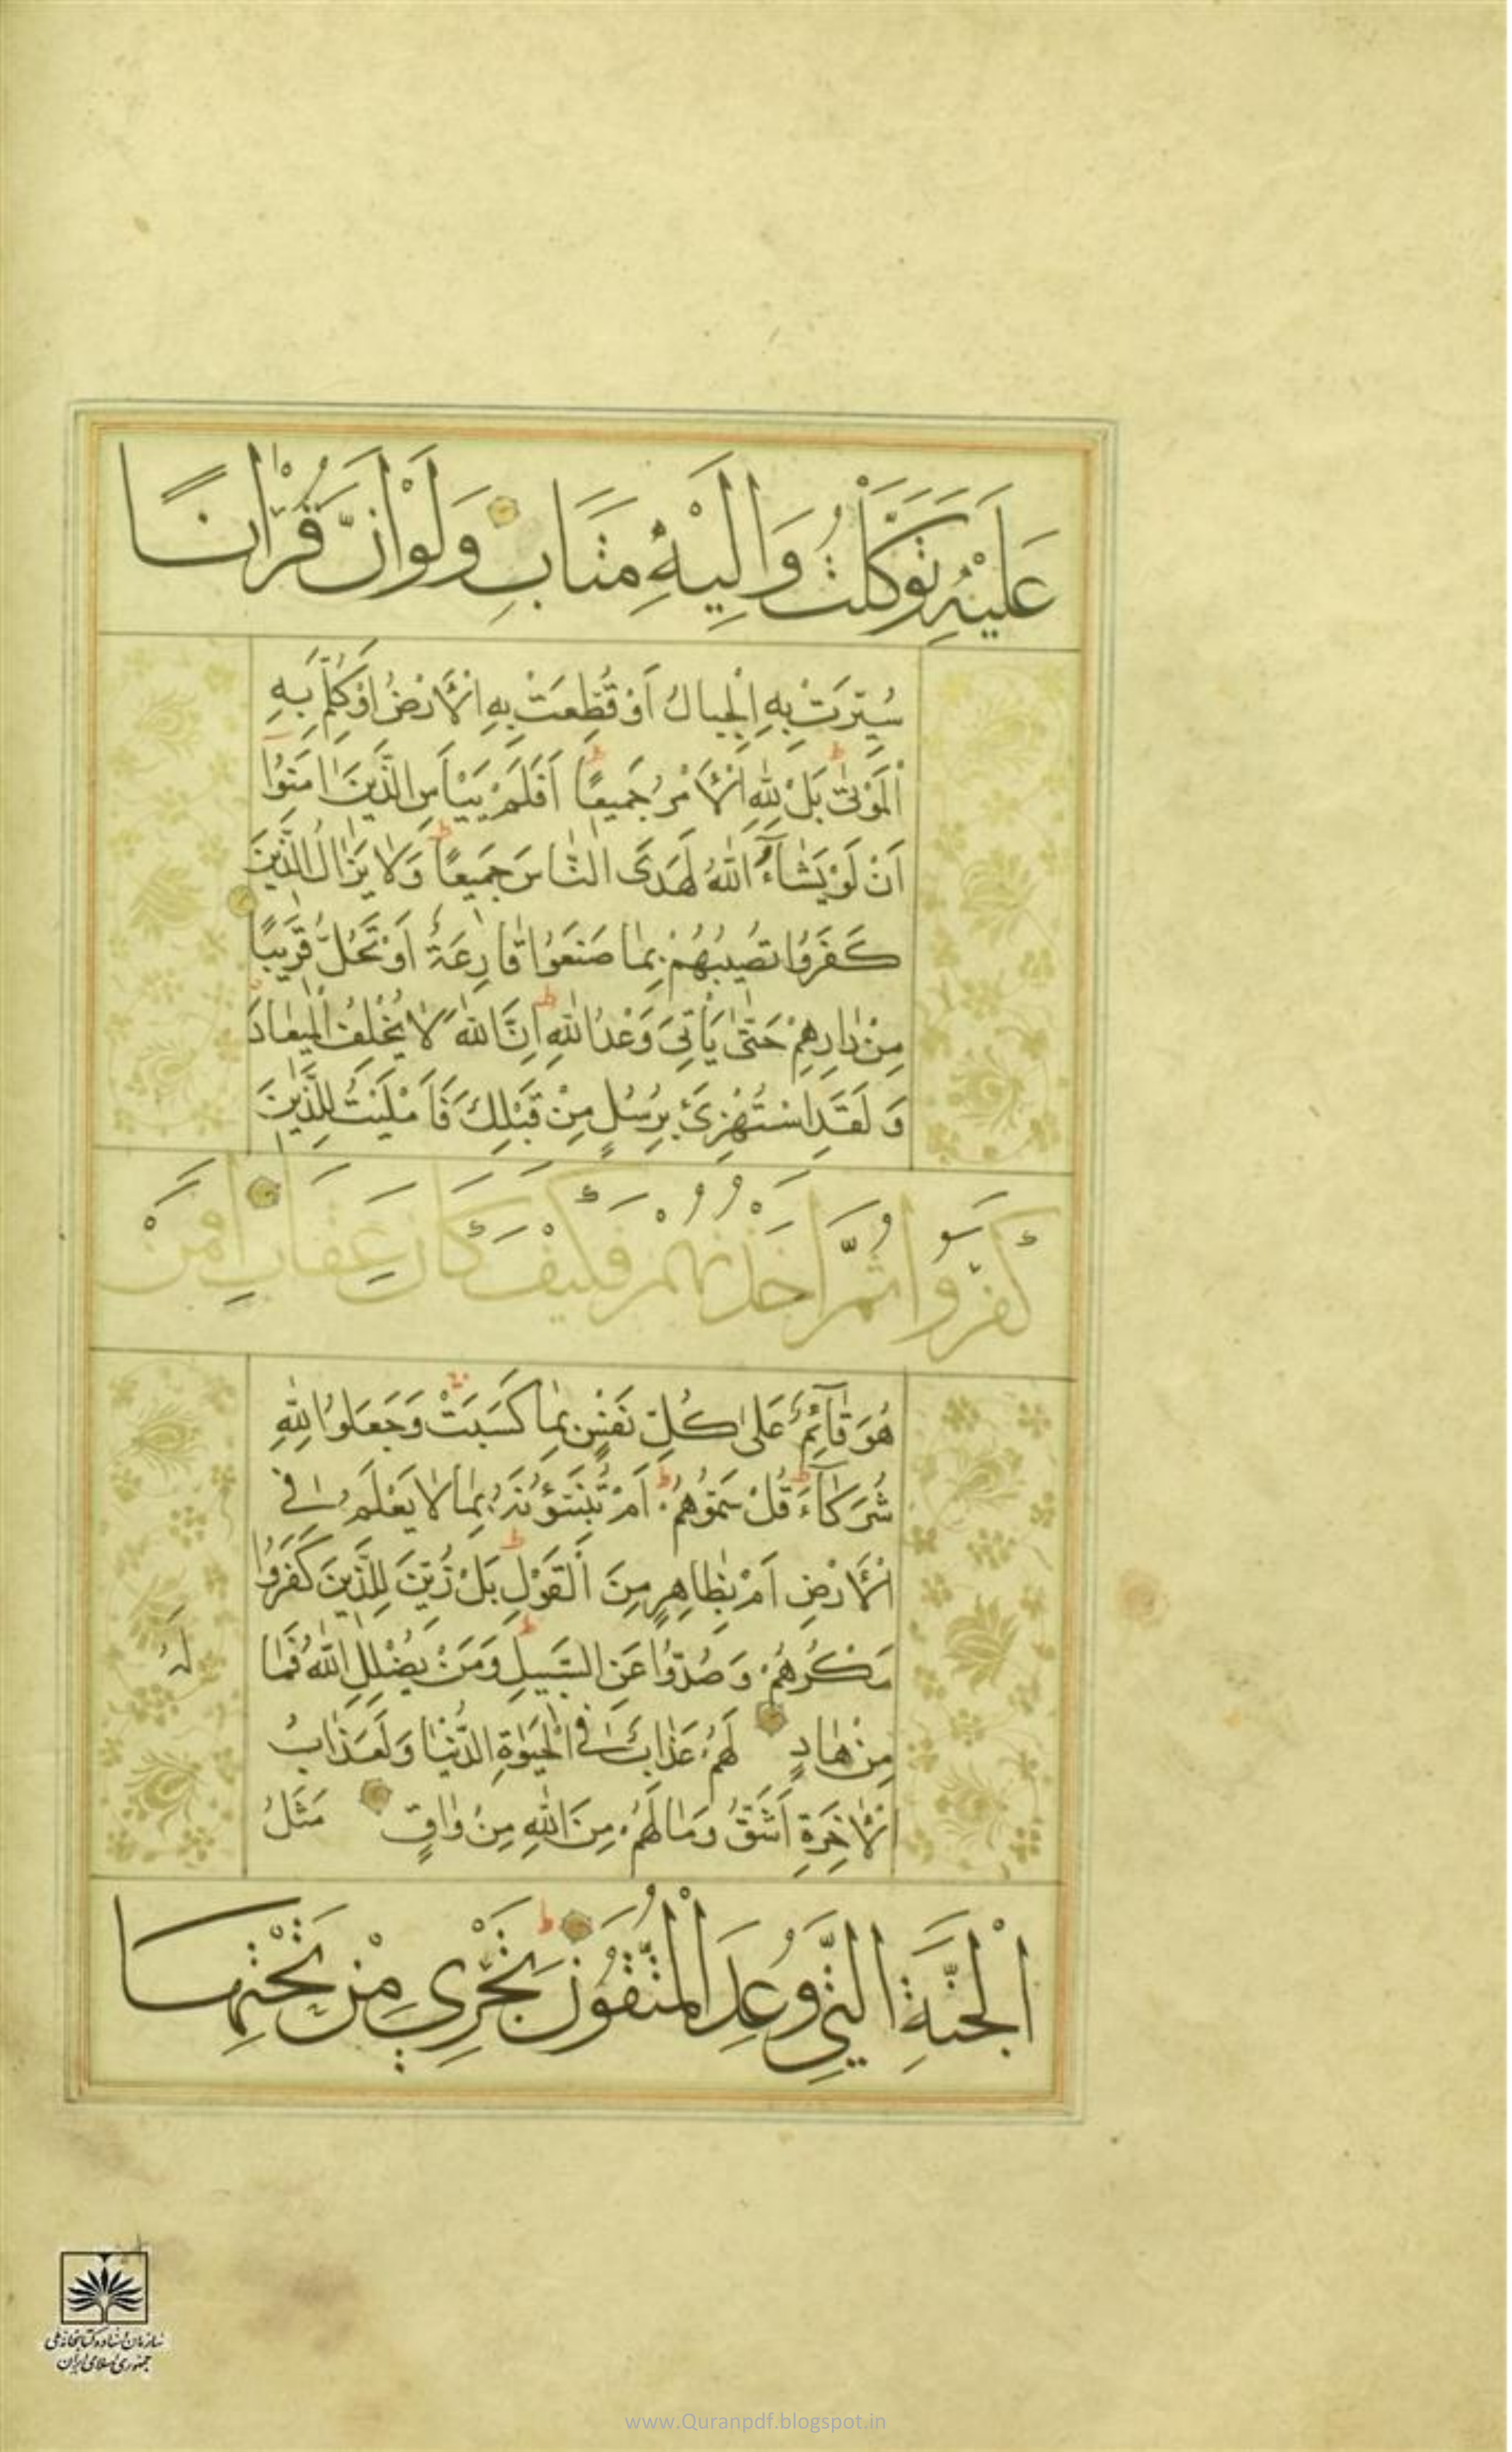 عَلَيْهِ تَوَكَّلْتُ وَاِلَيْهِ مَتَابِ وَلَوْ اَنَّ قُرْاٰنًا
سُيِّرَتْ بِهِ الْجِبَالُ اَوْ قُطِّعَتْ بِهِ الْاَرْضُ اَوْ كُلِّمَ بِهِ
الْمَوْتٰى بَلْ لِلّٰهِ الْاَمْرُ جَمِيعًا اَفَلَمْ يَيْاَسِ الَّذِينَ اٰمَنُوا
اَنْ لَوْ يَشَآءُ اللّٰهُ لَهَدَى النَّاسَ جَمِيعًا وَلَا يَزَالُ الَّذِينَ
كَفَرُوا تُصِيبُهُمْ بِمَا صَنَعُوا قَارِعَةٌ اَوْ تَحُلُّ قَرِيبًا
مِنْ دَارِهِمْ حَتّٰى يَاْتِيَ وَعْدُ اللّٰهِ اِنَّ اللّٰهَ لَا يُخْلِفُ الْمِيعَادَ
وَلَقَدِ اسْتُهْزِئَ بِرُسُلٍ مِنْ قَبْلِكَ فَاَمْلَيْتُ لِلَّذِينَ
كَفَرُوا ثُمَّ اَخَذْتُهُمْ فَكَيْفَ كَانَ عِقَابِ اَفَمَنْ
هُوَ قَآئِمٌ عَلٰى كُلِّ نَفْسٍ بِمَا كَسَبَتْ وَجَعَلُوا لِلّٰهِ
شُرَكَآءَ قُلْ سَمُّوهُمْ اَمْ تُنَبِّؤُنَهُ بِمَا لَا يَعْلَمُ فِي
الْاَرْضِ اَمْ بِظَاهِرٍ مِنَ الْقَوْلِ بَلْ زُيِّنَ لِلَّذِينَ كَفَرُوا
مَكْرُهُمْ وَصُدُّوا عَنِ السَّبِيلِ وَمَنْ يُضْلِلِ اللّٰهُ فَمَا
لَهُ
مِنْ هَادٍ لَهُمْ عَذَابٌ فِي الْحَيٰوةِ الدُّنْيَا وَلَعَذَابُ
الْاٰخِرَةِ اَشَقُّ وَمَا لَهُمْ مِنَ اللّٰهِ مِنْ وَاقٍ مَثَلُ
الْجَنَّةِ الَّتِي وُعِدَ الْمُتَّقُونَ تَجْرِي مِنْ تَحْتِهَا
سازمان اسناد و کتابخانه ملی
جمهوری اسلامی ایران
www.Quranpdf.blogspot.in